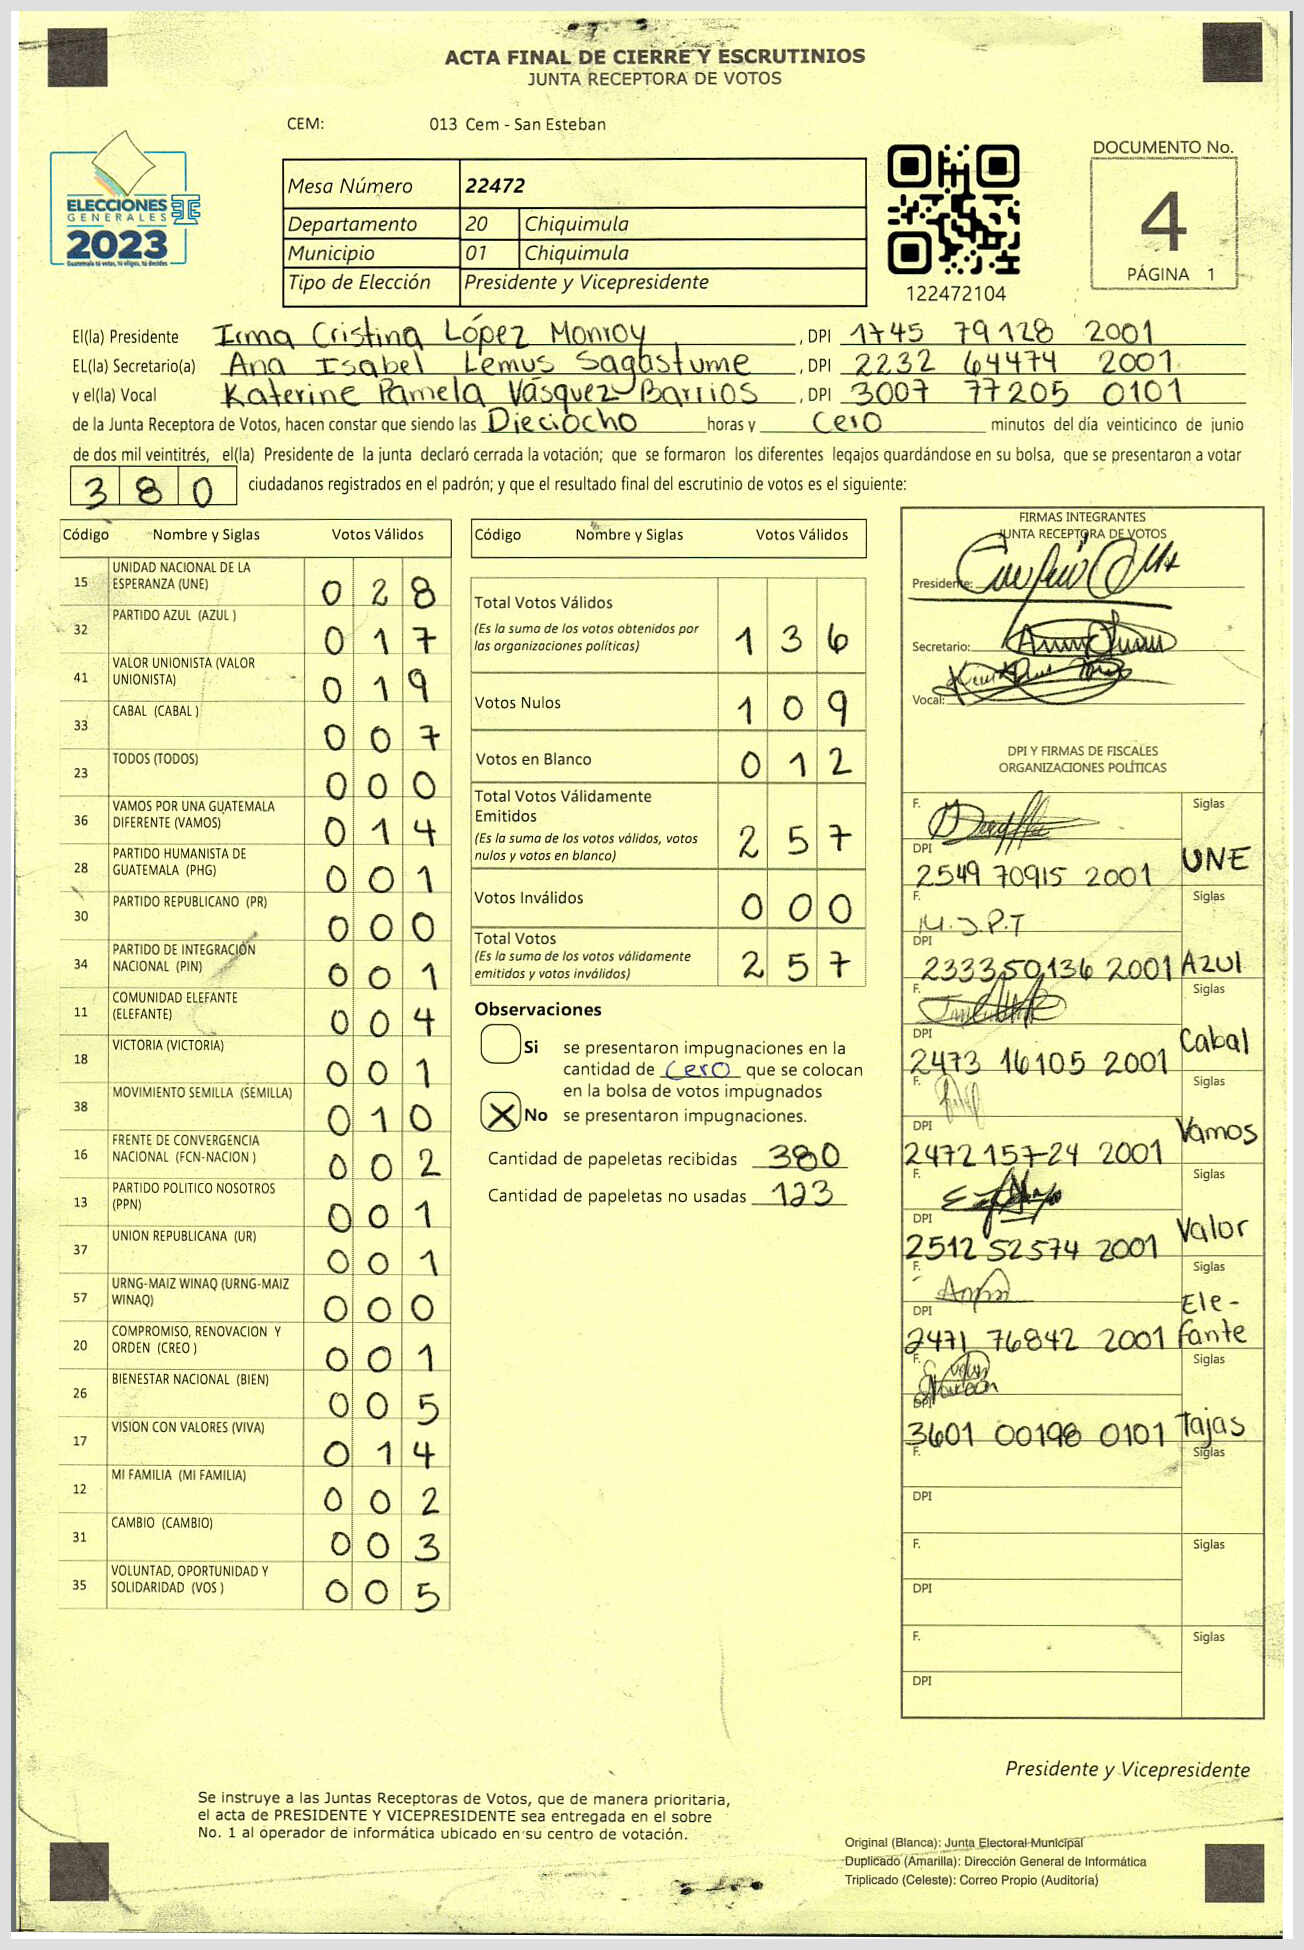 ACTA FINAL DE CIERRE Y ESCRUTINIOS
JUNTA RECEPTORA DE VOTOS
CEM: 013 Cem - San Esteban
ELECCIONES
GENERALES
2023
Guatemala tú votas, tú eliges, tú decides
Mesa Número 22472
Departamento 20 Chiquimula
Municipio 01 Chiquimula
Tipo de Elección Presidente y Vicepresidente
122472104
DOCUMENTO No.
4
PÁGINA 1
El(la) Presidente Irma Cristina López Monroy, DPI 1745 79128 2001
EL(la) Secretario(a) Ana Isabel Lemus Sagastume, DPI 2232 64474 2001
y el(la) Vocal Katerine Pamela Vásquez Barrios, DPI 3007 77205 0101
de la Junta Receptora de Votos, hacen constar que siendo las Dieciocho horas y Cero minutos del día veinticinco de junio
de dos mil veintitrés, el(la) Presidente de la junta declaró cerrada la votación; que se formaron los diferentes legajos guardándose en su bolsa, que se presentaron a votar
380 ciudadanos registrados en el padrón; y que el resultado final del escrutinio de votos es el siguiente:
Código Nombre y Siglas Votos Válidos
15 UNIDAD NACIONAL DE LA
ESPERANZA (UNE) 0 2 8
32 PARTIDO AZUL (AZUL ) 0 1 7
41 VALOR UNIONISTA (VALOR
UNIONISTA) 0 1 9
33 CABAL (CABAL ) 0 0 7
23 TODOS (TODOS) 0 0 0
36 VAMOS POR UNA GUATEMALA
DIFERENTE (VAMOS) 0 1 4
28 PARTIDO HUMANISTA DE
GUATEMALA (PHG) 0 0 1
30 PARTIDO REPUBLICANO (PR) 0 0 0
34 PARTIDO DE INTEGRACIÓN
NACIONAL (PIN) 0 0 1
11 COMUNIDAD ELEFANTE
(ELEFANTE) 0 0 4
18 VICTORIA (VICTORIA) 0 0 1
38 MOVIMIENTO SEMILLA (SEMILLA) 0 1 0
16 FRENTE DE CONVERGENCIA
NACIONAL (FCN-NACION ) 0 0 2
13 PARTIDO POLITICO NOSOTROS
(PPN) 0 0 1
37 UNION REPUBLICANA (UR) 0 0 1
57 URNG-MAIZ WINAQ (URNG-MAIZ
WINAQ) 0 0 0
20 COMPROMISO, RENOVACION Y
ORDEN (CREO ) 0 0 1
26 BIENESTAR NACIONAL (BIEN) 0 0 5
17 VISION CON VALORES (VIVA) 0 1 4
12 MI FAMILIA (MI FAMILIA) 0 0 2
31 CAMBIO (CAMBIO) 0 0 3
35 VOLUNTAD, OPORTUNIDAD Y
SOLIDARIDAD (VOS ) 0 0 5
Código Nombre y Siglas Votos Válidos
Total Votos Válidos
(Es la suma de los votos obtenidos por
las organizaciones políticas) 1 3 6
Votos Nulos 1 0 9
Votos en Blanco 0 1 2
Total Votos Válidamente
Emitidos
(Es la suma de los votos válidos, votos
nulos y votos en blanco) 2 5 7
Votos Inválidos 0 0 0
Total Votos
(Es la suma de los votos válidamente
emitidos y votos inválidos) 2 5 7
Observaciones
Si se presentaron impugnaciones en la
cantidad de Cero que se colocan
en la bolsa de votos impugnados
X No se presentaron impugnaciones.
Cantidad de papeletas recibidas 380
Cantidad de papeletas no usadas 123
FIRMAS INTEGRANTES
JUNTA RECEPTORA DE VOTOS
Presidente:
Secretario:
Vocal:
DPI Y FIRMAS DE FISCALES
ORGANIZACIONES POLÍTICAS
F. Siglas
DPI
2549 70915 2001 UNE
F. Siglas
M.J.P.T
DPI
2333 50136 2001 Azul
F. Siglas
DPI
2473 16105 2001 Cabal
F. Siglas
DPI
2472 157-24 2001 Vamos
F. Siglas
DPI
2512 52574 2001 Valor
F. Siglas
DPI
Ele-
2471 76842 2001 fante
F. Siglas
DPI
3601 00198 0101 Tajas
F. Siglas
DPI
F. Siglas
DPI
F. Siglas
DPI
Presidente y Vicepresidente
Se instruye a las Juntas Receptoras de Votos, que de manera prioritaria,
el acta de PRESIDENTE Y VICEPRESIDENTE sea entregada en el sobre
No. 1 al operador de informática ubicado en su centro de votación.
Original (Blanca): Junta Electoral Municipal
Duplicado (Amarilla): Dirección General de Informática
Triplicado (Celeste): Correo Propio (Auditoría)